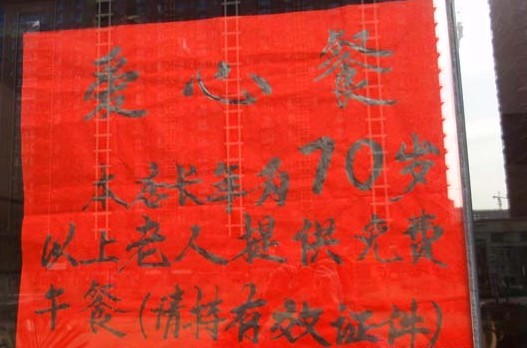 爱心餐
本店长年为70岁
以上老人提供免费
午餐(请持有效证件)